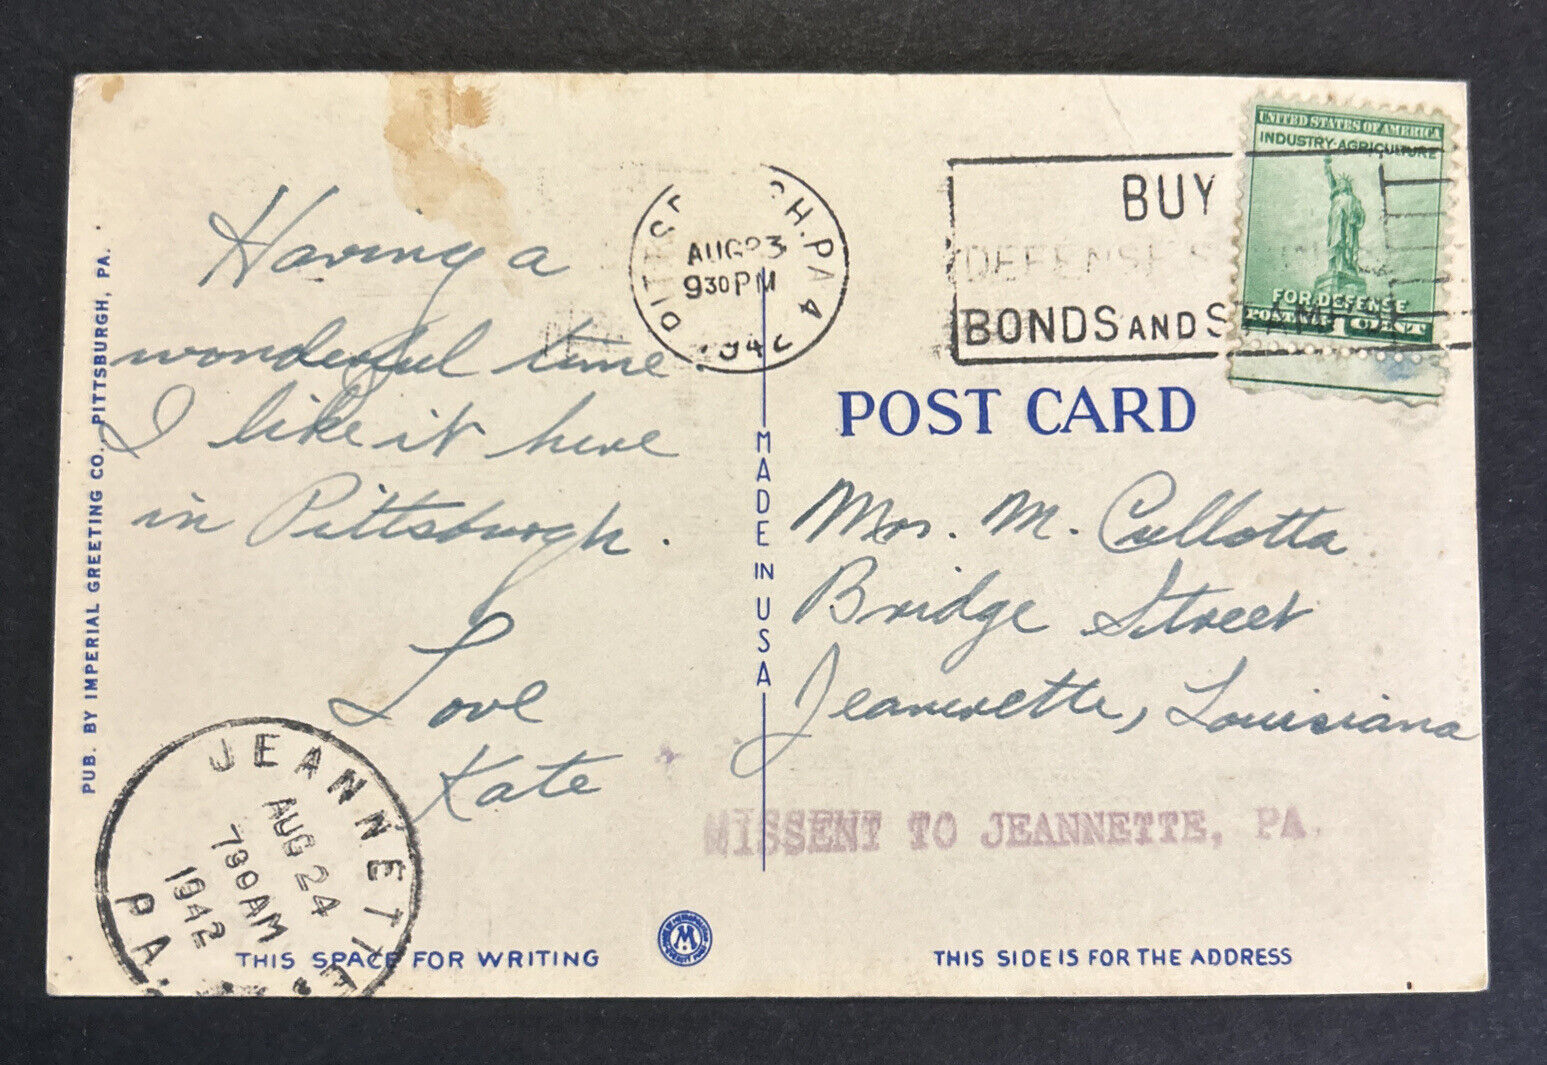 PUB. BY IMPERIAL GREETING CO., PITTSBURGH, PA.
Having a
wonderful time
I like it here
in Pittsburgh.
Love
Kate
PITTSBURGH, PA 4
AUG 23
930 PM
1942
BUY
DEFENSE SAVINGS
BONDS AND STAMPS
UNITED STATES OF AMERICA
INDUSTRY·AGRICULTURE
FOR DEFENSE
POSTAGE 1 CENT
POST CARD
MADE IN USA
Mrs. M. Cullotta
Bridge Street
Jeannette, Louisiana
MISSENT TO JEANNETTE, PA.
JEANNETTE
AUG 24
730 AM
1942
PA.
THIS SPACE FOR WRITING
M
THIS SIDE IS FOR THE ADDRESS